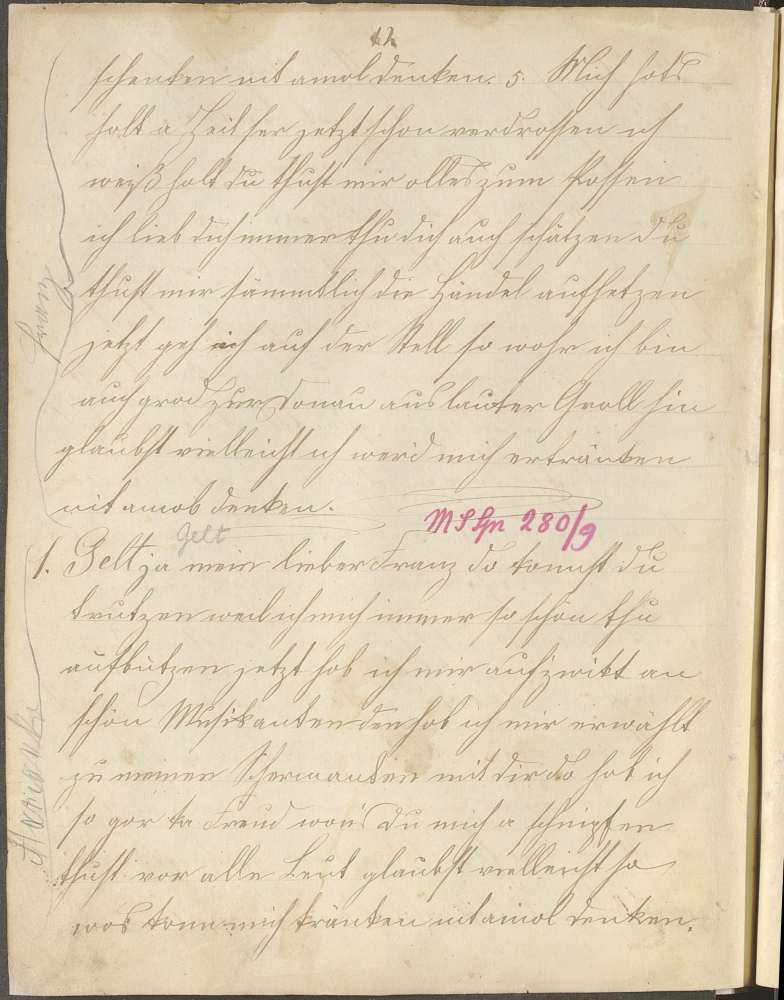 12.
schenken nit amol denken. 5. Mich hats
halt a Zeit her jetzt schon verdrossen ich
weiß halt du thust mir olles zum Possen
ich lieb dich immer thu dich auch schätzen du
thust mir sämmtlich die Händel aufhetzen
jetzt geh ich auf der Stell so wohr ich bin
auch grod zur Donau aus lauter Groll hin
glaubst vielleicht ich werd mich ertränken
nit amol denken.
Franz
MS Gn 280/9
Gelt
1. Gelt ja mein lieber Franz do konnst du
trutzen weil ich mich immer so schön thu
aufbutzen jetzt hob ich mir aufzwikt an
schön Musikanten den hob ich mir erwählt
zu meinen Schermanten mit dir do hob ich
so gor ka Freud wons du mich a schimpfen
thust vor alle Leut glaubst vielleicht so
wos konn mich kränken nit amol denken.